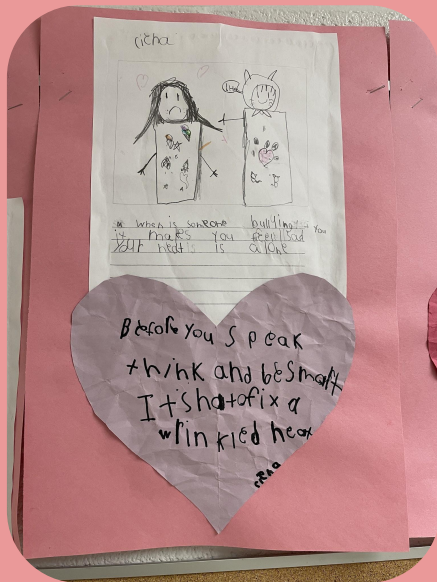 richa
when is someone bullying you
it makes you feel sad
your heat is alone
Before you speak
think and be smart
It's hatofix a
wrinkled heat